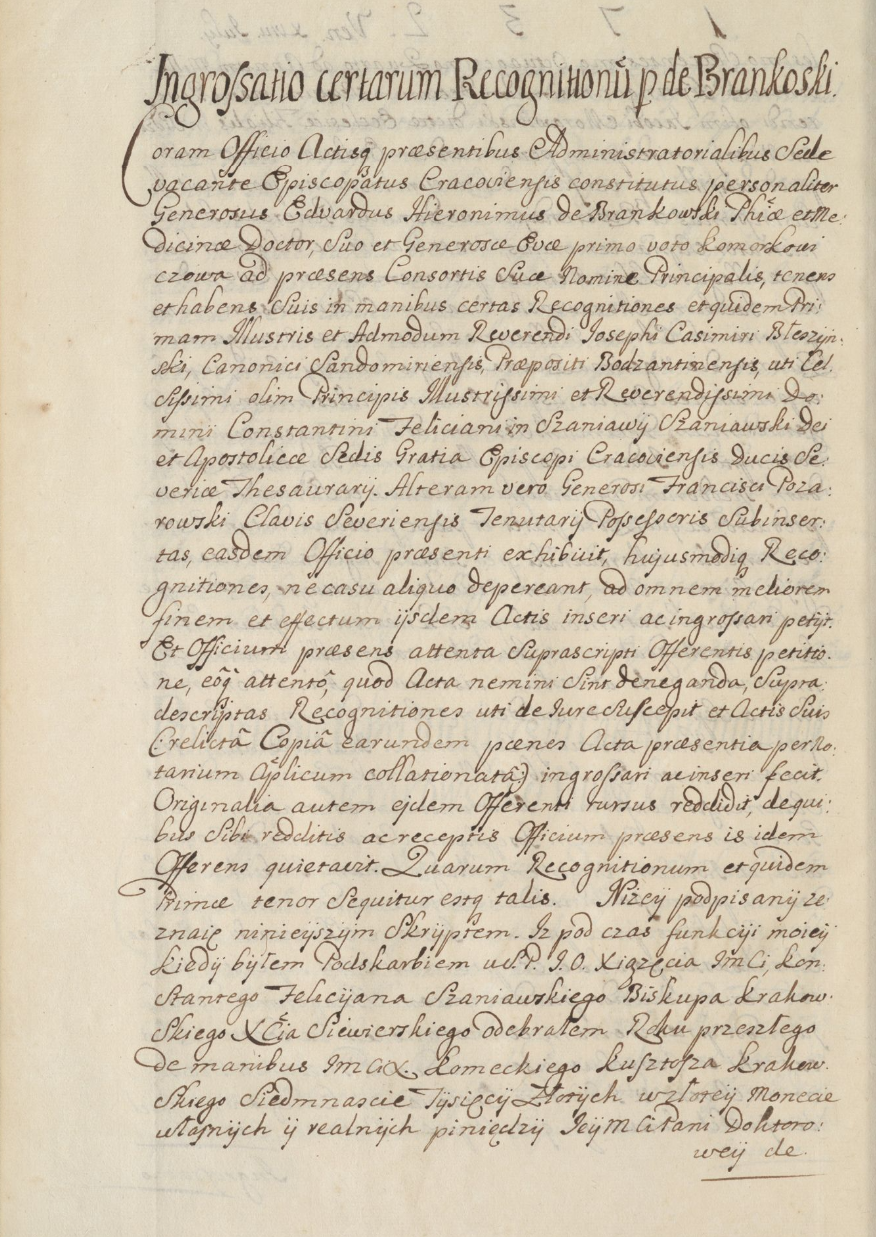 Ingrossatio certarum Recognitionū p de Brankoski.
Coram Officio Actisq præsentibus Administratorialibus Sede
vacañte Episcopatus Cracoviensis constitutus personaliter
Generosus Edvardus Hieronimus de Brankowski Phiæ et Me:
dicinæ Doctor, Suo et Generosæ Evæ primo voto Komorkowi
czowa ad præsens Consortis Suæ Nomine Principalis, tenens
et habens Suis in manibus certas Recognitiones et quidem Pri:
mam Illustris et Admodum Reverendi Josephi Casimiri Błeszyn:
ski, Canonici Sandomiriensis, Præpositi Bodzantinensis, uti Cel,
sissimi olim Principis Illustrissimi et Reverendissimi Do:
mini Constantini Feliciani in Szaniawÿ Szaniawski Dei
et Apostolicæ Sedis Gratia Episcopi Cracoviensis Ducis Se:
veriæ Thesaurarÿ. Alteram vero Generosi Francisci Poza:
rowski Clavis Severiensis Tenutarÿ Possessoris Subinser:
tas, easdem Officio præsenti exhibuit, hujusmodiq Reco:
gnitiones, ne casu aliquo depereant, ad omnem meliorem
finem et effectum ijsdem Actis inseri ac ingrossari petÿt.
Et Officium præsens attenta Suprascripti Offerentis petitio:
ne, eōq̃ attentō, quod Acta nemini Sint deneganda, Supra:
descriptas Recognitiones uti de Iure Suscepit et Actis Suis
(: relictā Copiā earundem pœnes Acta præsentia per No:
tarium Aplicum collationatā :) ingrossari ac inseri fecit.
Originalia autem ejdem Offerenti rursus reddidit, de qui:
bus Sibi redditis ac receptis Officium præsens is idem
Offerens quietavit. Quarum Recognitionum et quidem
Primæ tenor Sequitur estq talis. Niżeÿ podpisanÿ ze:
znaię ninieÿszÿm Skryptem. Iz pod czas funkcÿi moieÿ
kiedÿ byłem Podskarbiem u S.P. J.O. Xiązęcia ImCi, Kon:
stantego Felicÿana Szaniawskiego Biskupa Krakow:
Skiego XCia Siewierskiego odebrałem Roku przeszłego
de manibus ImCiX. Komeckiego Kusztosza Krakow:
Skiego Siedmnascie Tÿsięcÿ Złotÿch w złoteÿ Monecie
własnÿch ÿ realnÿch pinięd​zÿ JeÿmCi Pani Doktoro:
weÿ de